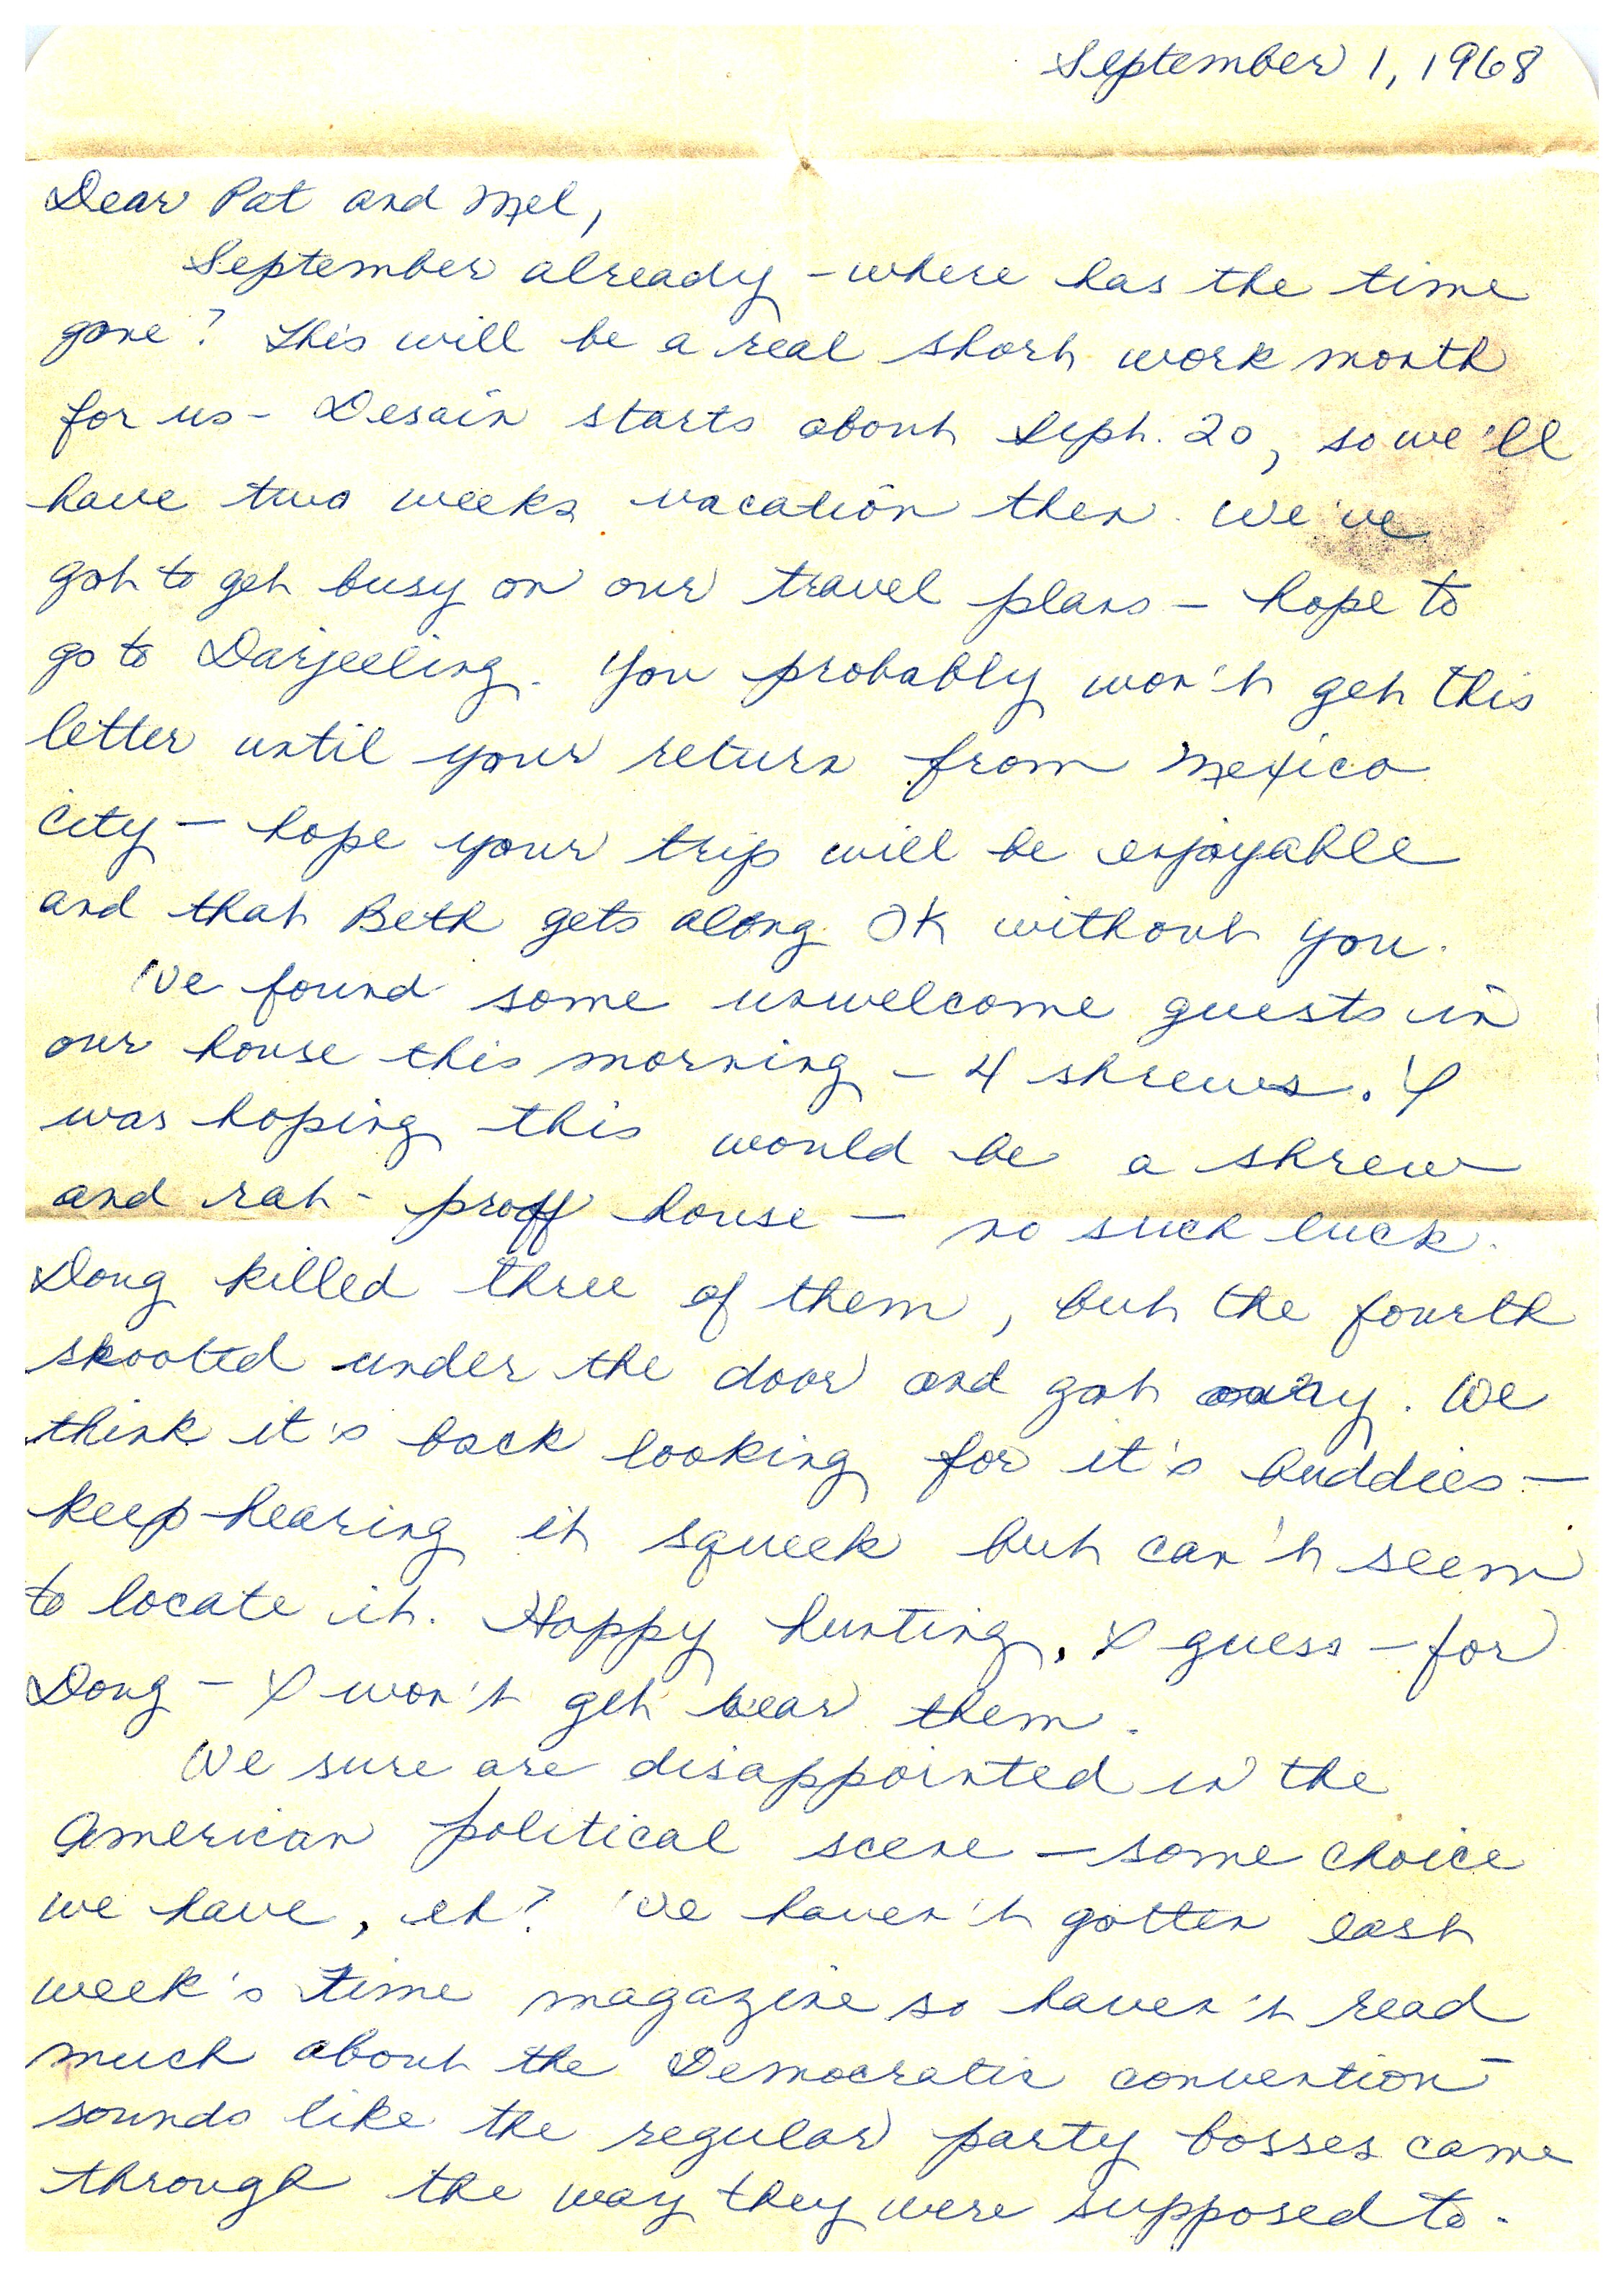 September 1, 1968
Dear Pat and Mel,
September already - where has the time
gone? This will be a real short work month
for us - Desain starts about Sept. 20, so we'll
have two weeks vacation then. We've
got to get busy on our travel plans - hope to
go to Darjeeling. You probably won't get this
letter until your return from Mexico
City - hope your trip will be enjoyable
and that Beth gets along OK without you.
We found some unwelcome guests in
our house this morning - 4 shrews. I
was hoping this would be a shrew
and rat-proff house - no such luck.
Doug killed three of them, but the fourth
skooted under the door and got away. We
think it's back looking for it's buddies -
keep hearing it squeek but can't seem
to locate it. Happy hunting, I guess - for
Doug - I won't get near them.
We sure are disappointed in the
American political scene - some choice
we have, eh? We haven't gotten last
week's Time magazine so haven't read
much about the Democratic convention -
sounds like the regular party bosses came
through the way they were supposed to.